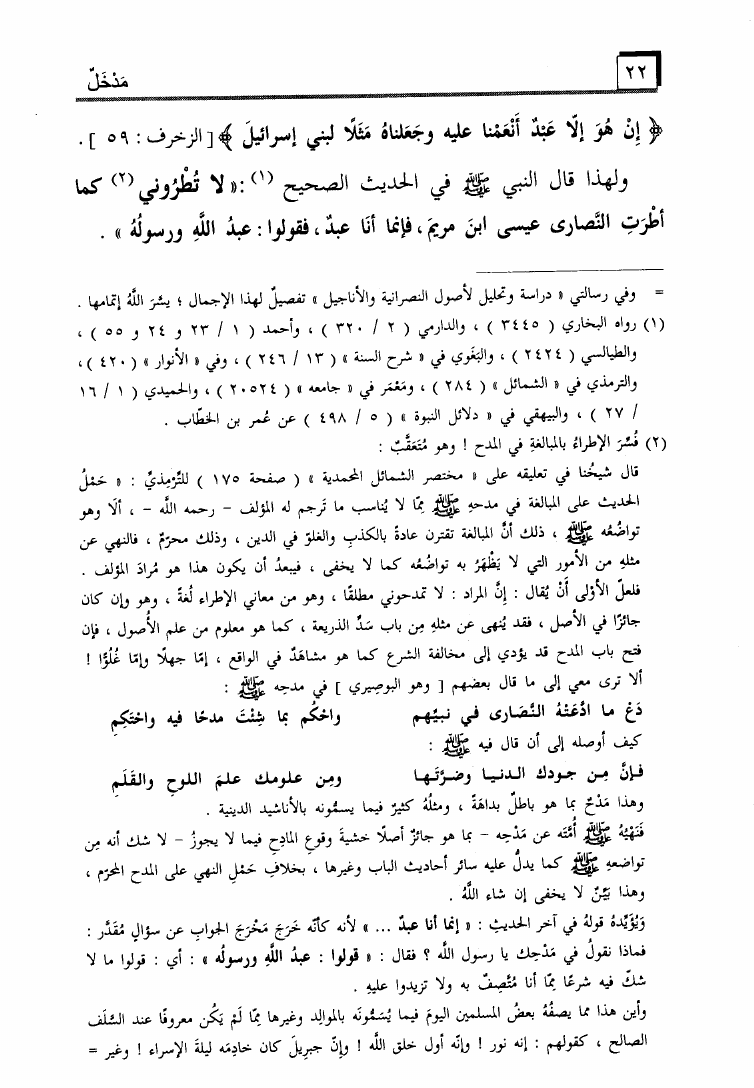 ٢٢
مَدْخَلٌ
﴿ إِنْ هُوَ إلَّا عَبْدٌ أَنْعَمْنا عليه وجَعَلناهُ مَثَلًا لبني إسرائيلَ ﴾ [ الزخرف : ٥٩ ] .
ولهذا قال النبي ﷺ في الحديث الصحيح (١) : « لا تُطْرُوني (٢) كما
أطْرَتِ النَّصارى عيسى ابنَ مريمَ ، فإنما أنَا عبدٌ ، فقولوا : عبدُ اللَّهِ ورسولُهُ » .
= وفي رسالتي « دراسة وتحليل لأصول النصرانية والأناجيل » تفصيلٌ لهذا الإجمال ؛ يسّرَ اللَّهُ إتمامها .
(١) رواه البخاري ( ٣٤٤٥ ) ، والدارمي ( ٢ / ٣٢٠ ) ، وأحمد ( ١ / ٢٣ و ٢٤ و ٥٥ ) ،
والطيالسي ( ٢٤٢٤ ) ، والبَغَوي في « شرح السنة » ( ١٣ / ٢٤٦ ) ، وفي « الأنوار » ( ٤٢٠ ) ،
والترمذي في « الشمائل » ( ٢٨٤ ) ، ومَعْمَر في « جامعه » ( ٢٠٥٢٤ ) ، والحميدي ( ١ / ١٦
/ ٢٧ ) ، والبيهقي في « دلائل النبوة » ( ٥ / ٤٩٨ ) عن عُمر بن الخطّاب .
(٢) فُسِّرَ الإطراءُ بالمبالغةِ في المدح ! وهو مُتَعَقَّبٌ :
قال شيخُنا في تعليقه على « مختصر الشمائل المحمدية » ( صفحة ١٧٥ ) للتِّرْمِذيِّ : « حَمْلُ
الحديث على المبالغة في مدحهِ ﷺ مِمّا لا يُناسب ما تَرجم له المؤلف - رحمه اللَّه - ، ألَا وهو
تواضُعُه ﷺ ، ذلك أنَّ المبالغة تقترن عادةً بالكذبِ والغلوّ في الدين ، وذلك محرّمٌ ، فالنهي عن
مثلهِ من الأمور التي لا يَظْهَرُ به تواضُعُه كما لا يخفى ، فيبعدُ أن يكون هذا هو مُرادَ المؤلف .
فلعلّ الأَوْلى أَنْ يُقال : إنَّ المراد : لا تمدحوني مطلقًا ، وهو من معاني الإطراء لُغةً ، وهو وإن كان
جائزًا في الأصل ، فقد يُنهى عن مثلهِ مِن باب سَدِّ الذريعة ، كما هو معلوم من علم الأُصول ، فإن
فتح باب المدح قد يؤدي إلى مخالفة الشرع كما هو مشاهَدٌ في الواقع ، إمّا جهلًا وإمّا غُلُوًّا !
ألا ترى معي إلى ما قال بعضهم [ وهو البوصيري ] في مدحه ﷺ :
دَعْ ما ادَّعَتْهُ النَّصارى في نبيِّهم واحْكُم بما شِئْتَ مدحًا فيه واحْتَكِمِ
كيف أوصله إلى أن قال فيه ﷺ :
فإنَّ مِن جودك الدنيا وضرّتَها ومِن علومك علمَ اللوحِ والقَلَمِ
وهذا مَدْحٌ بما هو باطلٌ بداهَةً ، ومثلُهُ كثيرٌ فيما يسمُّونه بالأناشيد الدينية .
فَنَهْيُهُ ﷺ أُمَّته عن مَدْحِه - بما هو جائزٌ أصلًا خشيةَ وقوع المادِح فيما لا يجوزُ - لا شك أنه مِن
تواضعهِ ﷺ كما يدلُّ عليه سائر أحاديث الباب وغيرها ، بخلافِ حَمْلِ النهي على المدح المحرّم ،
وهذا بَيِّنٌ لا يخفى إن شاء اللَّهُ .
وَيُؤَيِّدهُ قولهُ في آخر الحديث : « إنما أنا عبدٌ ... » لأنه كأنّه خَرَجَ مَخْرَجَ الجوابِ عن سؤالٍ مُقَدَّر :
فماذا نقولُ في مَدْحِك يا رسول اللَّه ؟ فقال : « قولوا : عبدُ اللَّهِ ورسولُه » : أي : قولوا ما لا
شكّ فيه شرعًا مِمّا أنا مُتَّصِفٌ به ولا تزيدوا عليهِ .
وأين هذا مما يصفُهُ بعضُ المسلمين اليومَ فيما يُسَمُّونَه بالموالِد وغيرها مِمّا لَمْ يَكُن معروفًا عند السَّلَف
الصالح ، كقولهم : إنه نور ! وإنّه أول خلق اللَّه ! وإنّ جبريلَ كان خادِمَه ليلةَ الإسراء ! وغير =